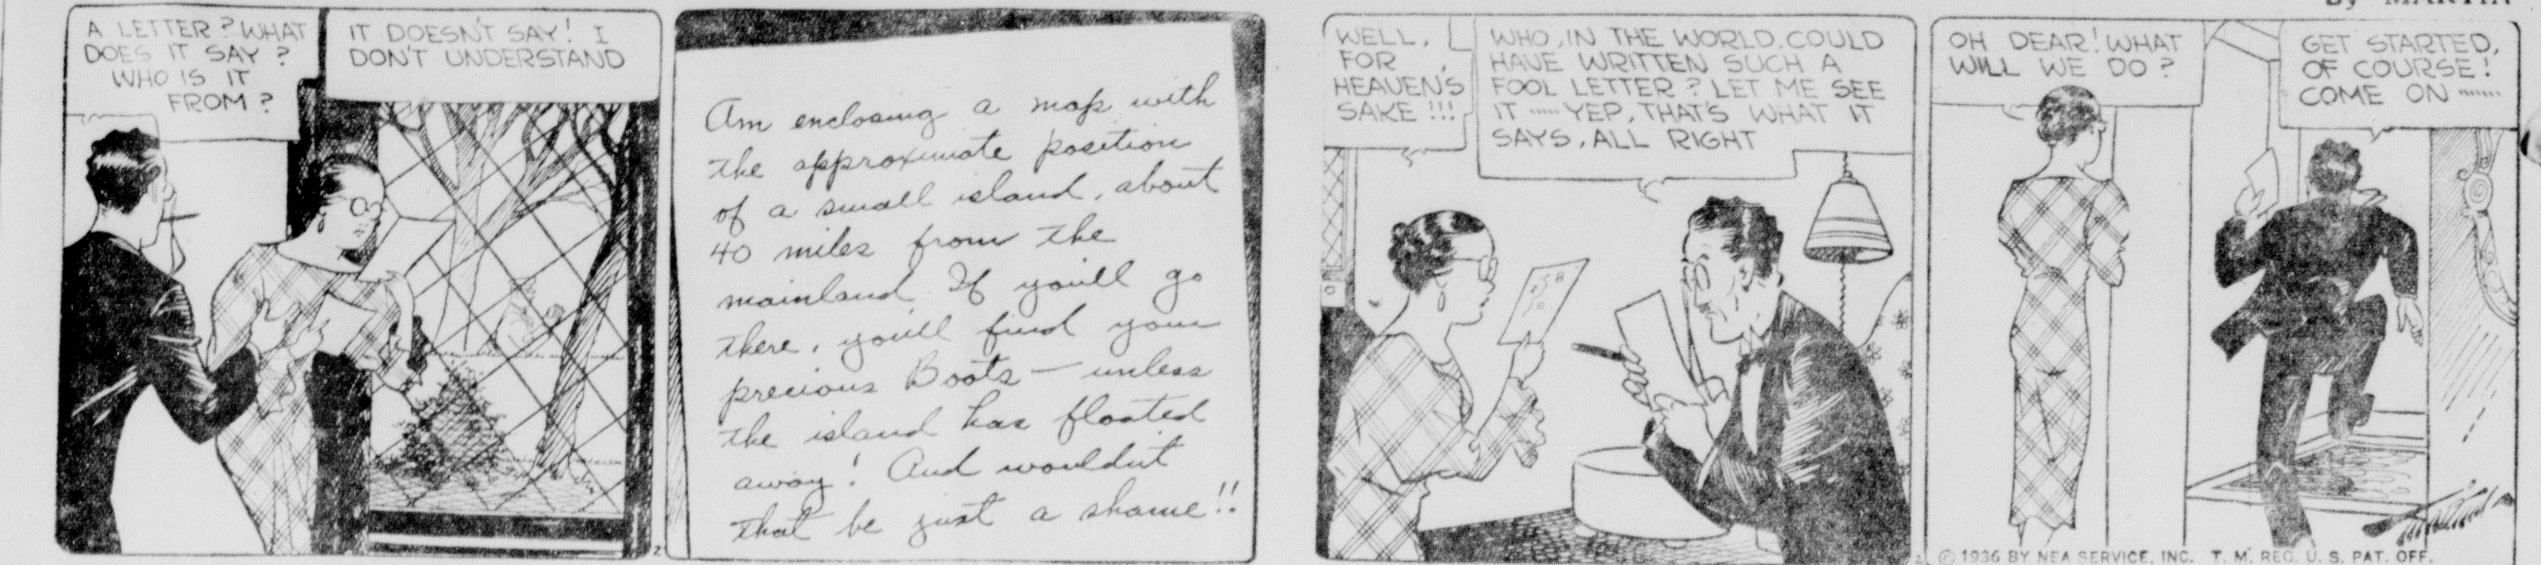 By MARTIN
A LETTER? WHAT
DOES IT SAY?
WHO IS IT
FROM?
IT DOESN'T SAY! I
DON'T UNDERSTAND
Am enclosing a map with
the approximate position
of a small island, about
40 miles from the
mainland. If you'll go
there, you'll find your
precious Boots — unless
the island has floated
away! And wouldn't
that be just a shame!!
WELL,
FOR
HEAVEN'S
SAKE!!!
WHO, IN THE WORLD, COULD
HAVE WRITTEN SUCH A
FOOL LETTER? LET ME SEE
IT ..... YEP, THAT'S WHAT IT
SAYS, ALL RIGHT
OH DEAR! WHAT
WILL WE DO?
GET STARTED,
OF COURSE!
COME ON ......
© 1936 BY NEA SERVICE, INC. T. M. REG. U. S. PAT. OFF.